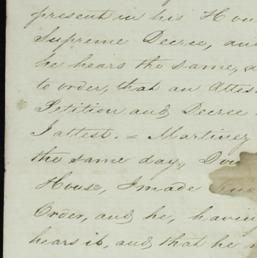 present in his Hou
Supreme Decree, an
he hears the same, a
to order, that an Attes
Petition and Decree
I attest. = Martinez
the same day, Do
House, I made
Order, and he, havin
hears it, and that he